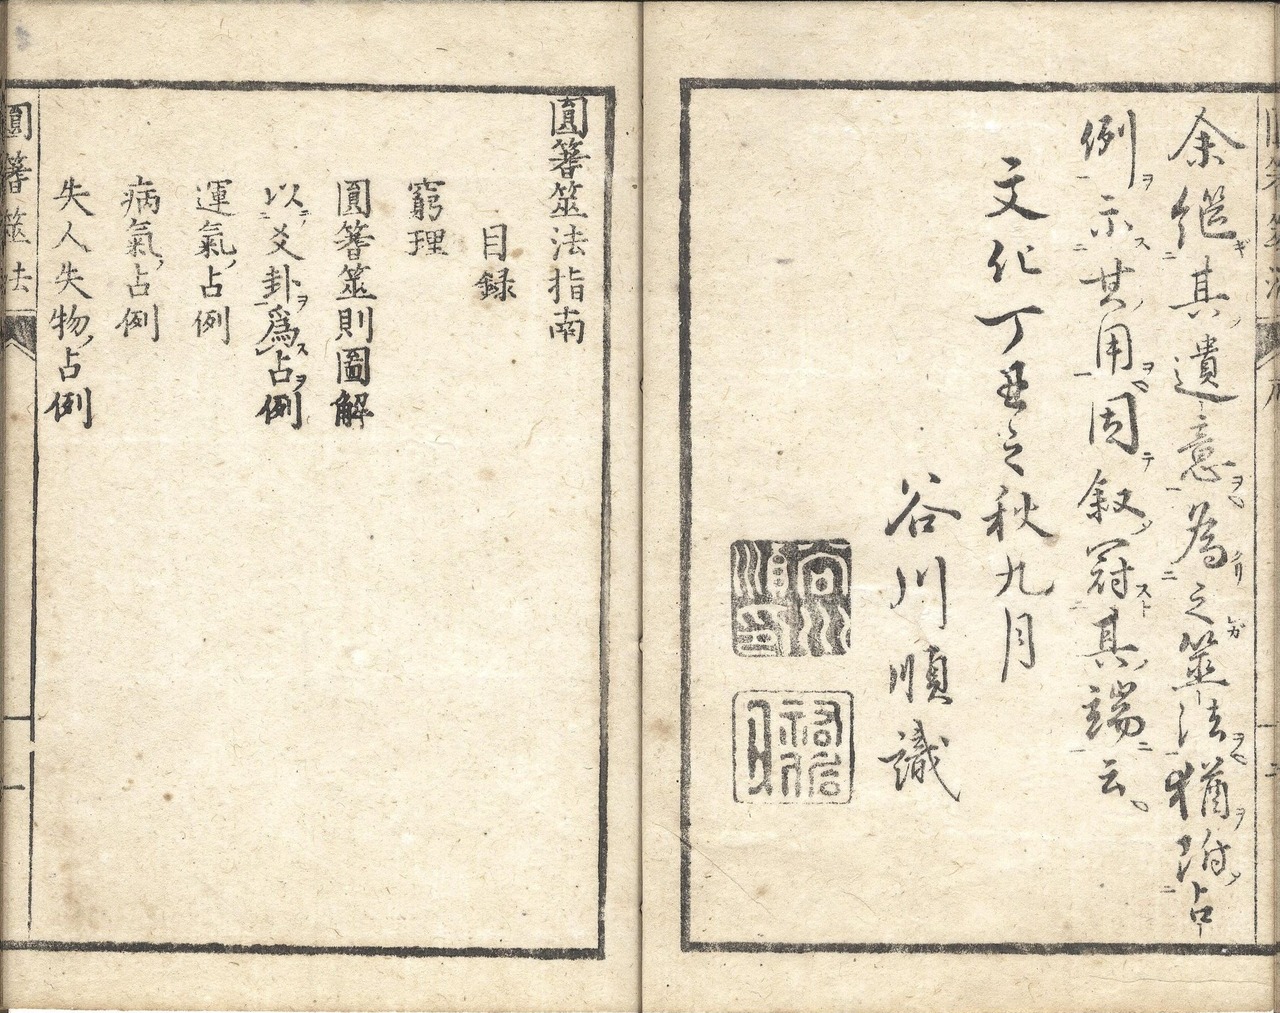 余継其遺意為之筮法猶附占
例示其用因叙冠其端云
文化丁丑之秋九月
谷川順識
圓蓍筮法指南
目録
窮理
圓蓍筮則圖解
以爻卦爲占例
運氣占例
病氣占例
失人失物占例
圓蓍筮法
一